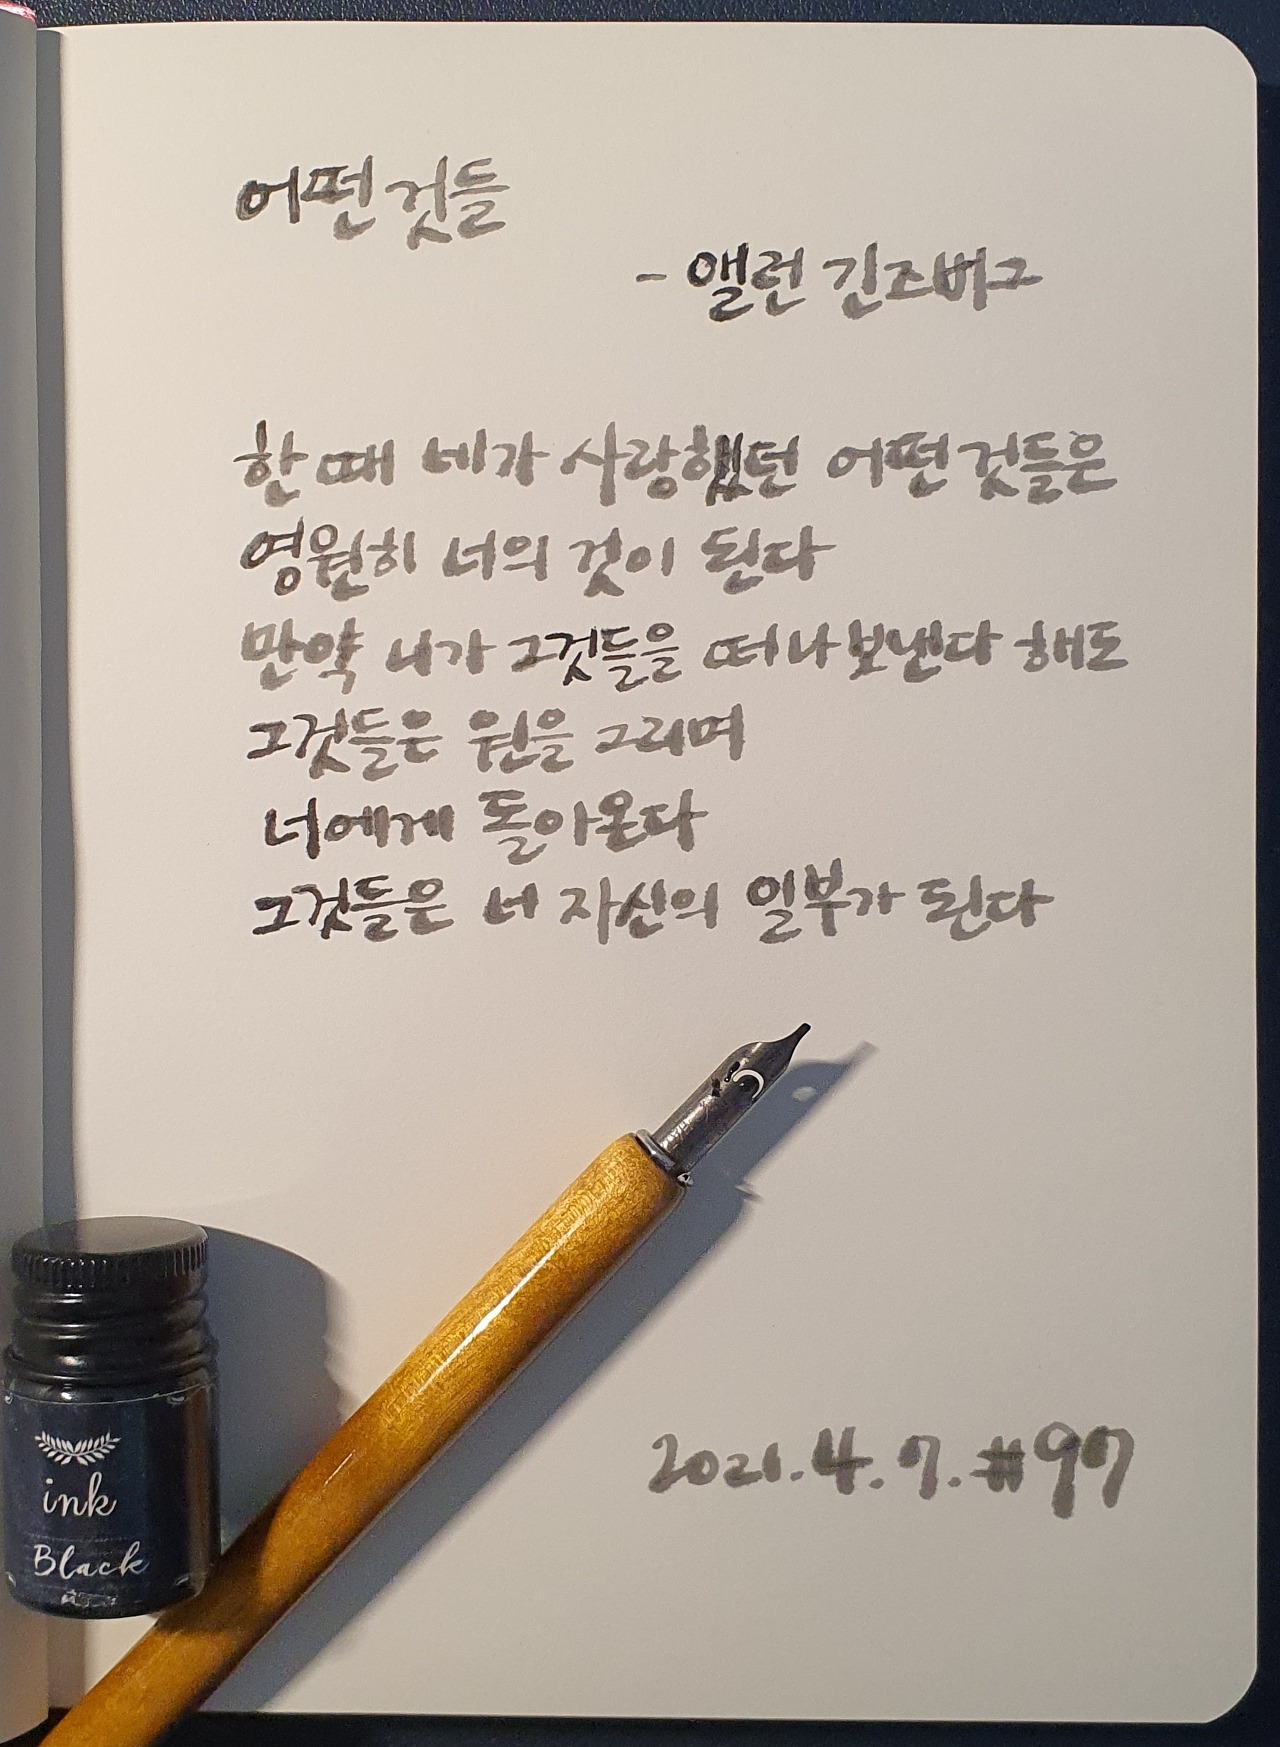 어떤 것들
- 앨런 긴즈버그
한 때 네가 사랑했던 어떤 것들은
영원히 너의 것이 된다
만약 네가 그것들을 떠나보낸다 해도
그것들은 원을 그리며
너에게 돌아온다
그것들은 너 자신의 일부가 된다
ink
Black
2021. 4. 7. #97